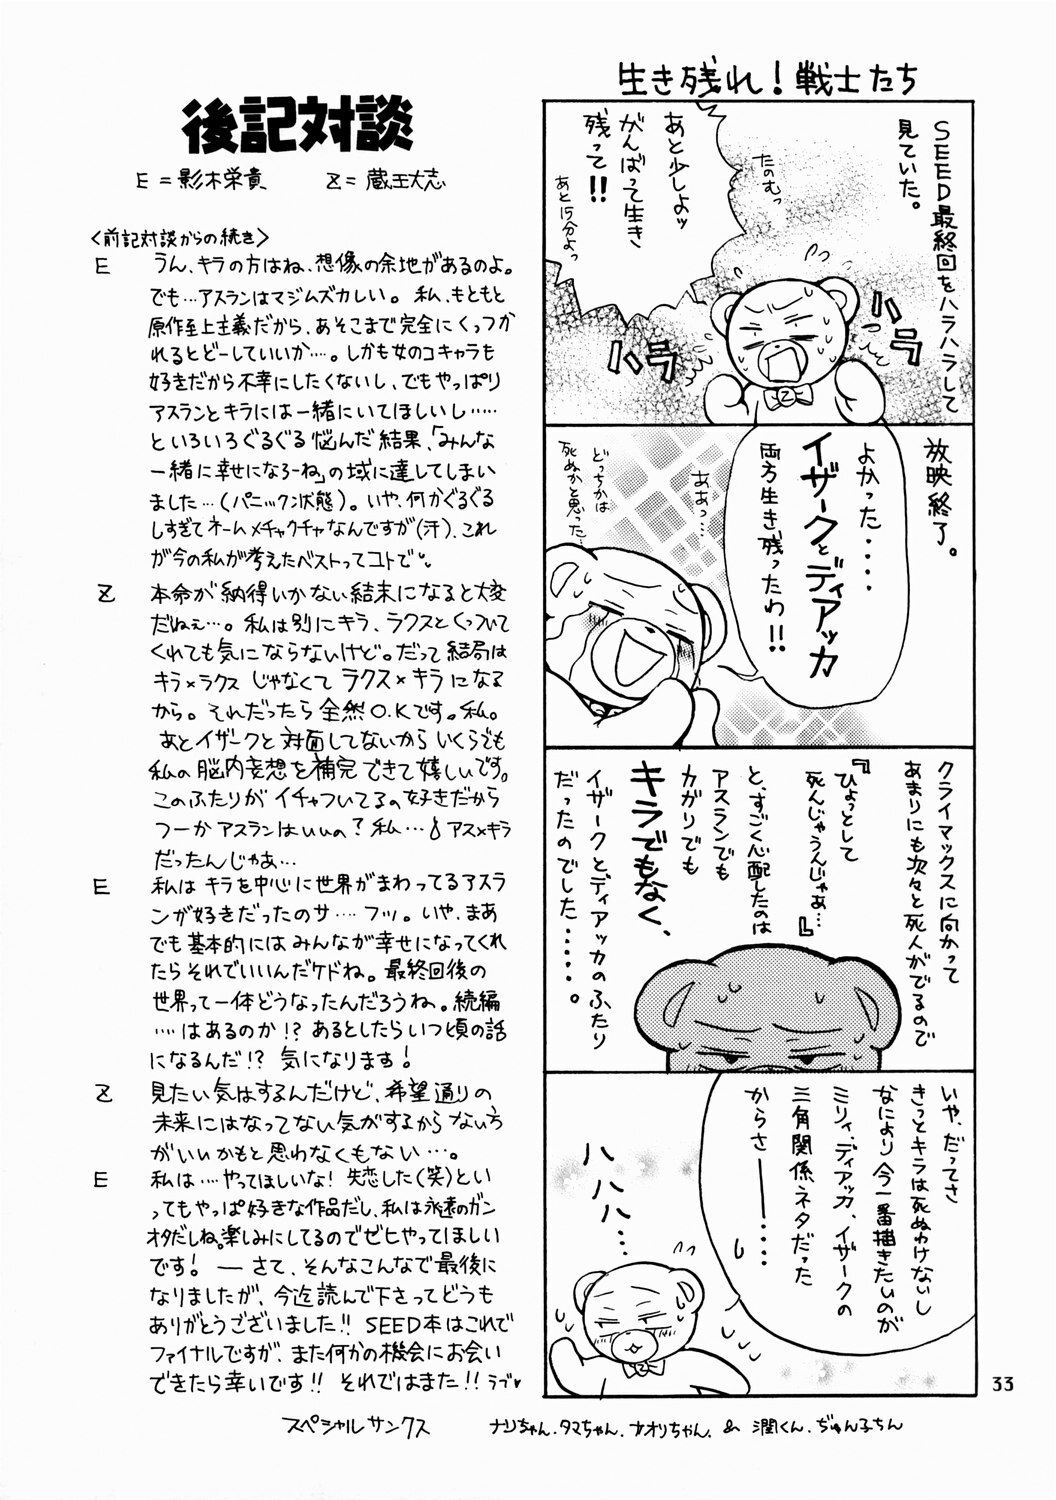 後記対談
E=影木栄貴　Z=蔵王大志
〈前記対談からの続き〉
E　うん、キラの方はね、想像の余地があるのよ。
でも…アスランはマジムズカしい。私、もともと
原作至上主義だから、あそこまで完全にくっつか
れるとどーしていいか…。しかも女のコキャラも
好きだから不幸にしたくないし、でもやっぱり
アスランとキラには一緒にいてほしいし……
といろいろぐるぐる悩んだ結果、「みんな
一緒に幸せになろーね」の域に達してしまい
ました…(パニック状態)。いや、何かぐるぐる
しすぎてネームメチャクチャなんですが(汗)、これ
が今の私が考えたベストってコトで。
Z　本命が納得いかない結末になると大変
だねぇ…。私は別にキラ、ラクスとくっついて
くれても気にならないけど。だって結局は
キラ×ラクスじゃなくてラクス×キラになる
から。それだったら全然O.Kです。私。
あとイザークと対面してないからいくらでも
私の脳内妄想を補完できて嬉しいです。
このふたりがイチャついてるの好きだから
つーかアスランはいいの？私…アス×キラ
だったんじゃあ…
E　私はキラを中心に世界がまわってるアスラ
ンが好きだったのサ…フッ。いや、まあ
でも基本的にはみんなが幸せになってくれ
たらそれでいいんだケドね。最終回後の
世界って一体どうなったんだろうね。続編
…はあるのか!?あるとしたらいつ頃の話
になるんだ!?気になります！
Z　見たい気はするんだけど、希望通りの
未来にはなってない気がするからない方
がいいかもと思わなくもない…。
E　私は…やってほしいな！失恋した(笑)とい
ってもやっぱ好きな作品だし、私は永遠のガン
オタだしね。楽しみにしてるのでゼヒやってほしい
です！—さて、そんなこんなで最後に
なりましたが、今迄読んで下さってどうも
ありがとうございました!!SEED本はこれで
ファイナルですが、また何かの機会にお会い
できたら幸いです!!それではまた!!ラブ♥
生き残れ！戦士たち
SEED最終回をハラハラして
見ていた。
たのむっ
あと少しよッ
がんばって生き
残って!!
あと15分よっ
ハラ
ハラ
放映終了。
よかった‥‥
イザークとディアッカ
両方生き残ったわ!!
ああっ…
どっちかは
死ぬかと思った…
クライマックスに向かって
あまりにも次々と死人がでるので
『ひょっとして
死んじゃうんじゃぁ…』
と、すごく心配したのは
アスランでも
カガリでも
キラでもなく、
イザークとディアッカのふたり
だったのでした‥‥‥。
いや、だってさ
きっとキラは死ぬわけないし
なにより今一番描きたいのが
ミリィ、ディアッカ、イザークの
三角関係ネタだった
からさ——‥‥
ハハハハ…
Z
33
スペシャルサンクス　ナリちゃん、タマちゃん、ナオリちゃん、&潤くん、ぢゅん子ちん